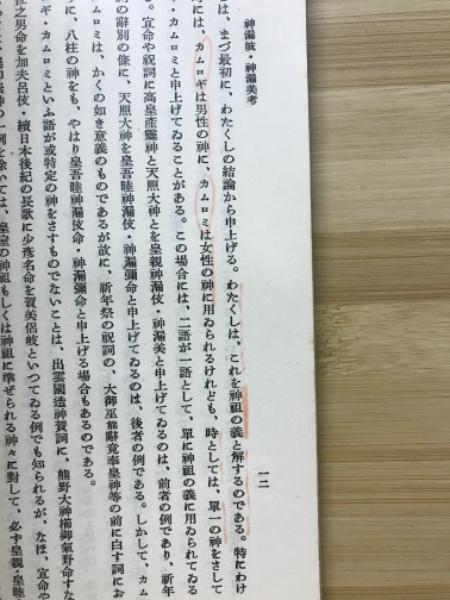 神漏岐・神漏美考
一二
は、まづ最初に、わたくしの結論から申上げる。わたくしは、これを神祖の義と解するのである。特にわけ
には、カムロギは男性の神に、カムロミは女性の神に用ゐられるけれども、時としては、單一の神をさして
・カムロミと申上げてゐることがある。この場合には、二語が一語として、單に神祖の義に用ゐられてゐる
る。宣命や祝詞に高皇産靈神と天照大神とを皇親神漏伎・神漏美と申上げてゐるのは、前者の例であり、祈年
の辭別の條に、天照大神を皇吾睦神漏伎命・神漏彌命と申上げてゐるのは、後者の例である。しかして、カム
ロミは、かくの如き意義のものであるが故に、祈年祭の祝詞の、大御巫能辭竟奉皇神等の前に白す詞にお
に、八柱の神をも、やはり皇吾睦神漏伎命・神漏彌命と申上げる場合もあるのである。
ギ・カムロミといふ語が或特定の神をさすものでないことは、出雲國造神賀詞に、熊野大神櫛御氣野命すな
之男命を加夫呂伎・續日本後紀の長歌に少彦名命を賀美侶岐といつてゐる例でも知られるが、なほ、宣命や
一例を除いては、皇室の神祖もしくは神祖に準ぜられる神々に對して、必ず皇親・皇睦